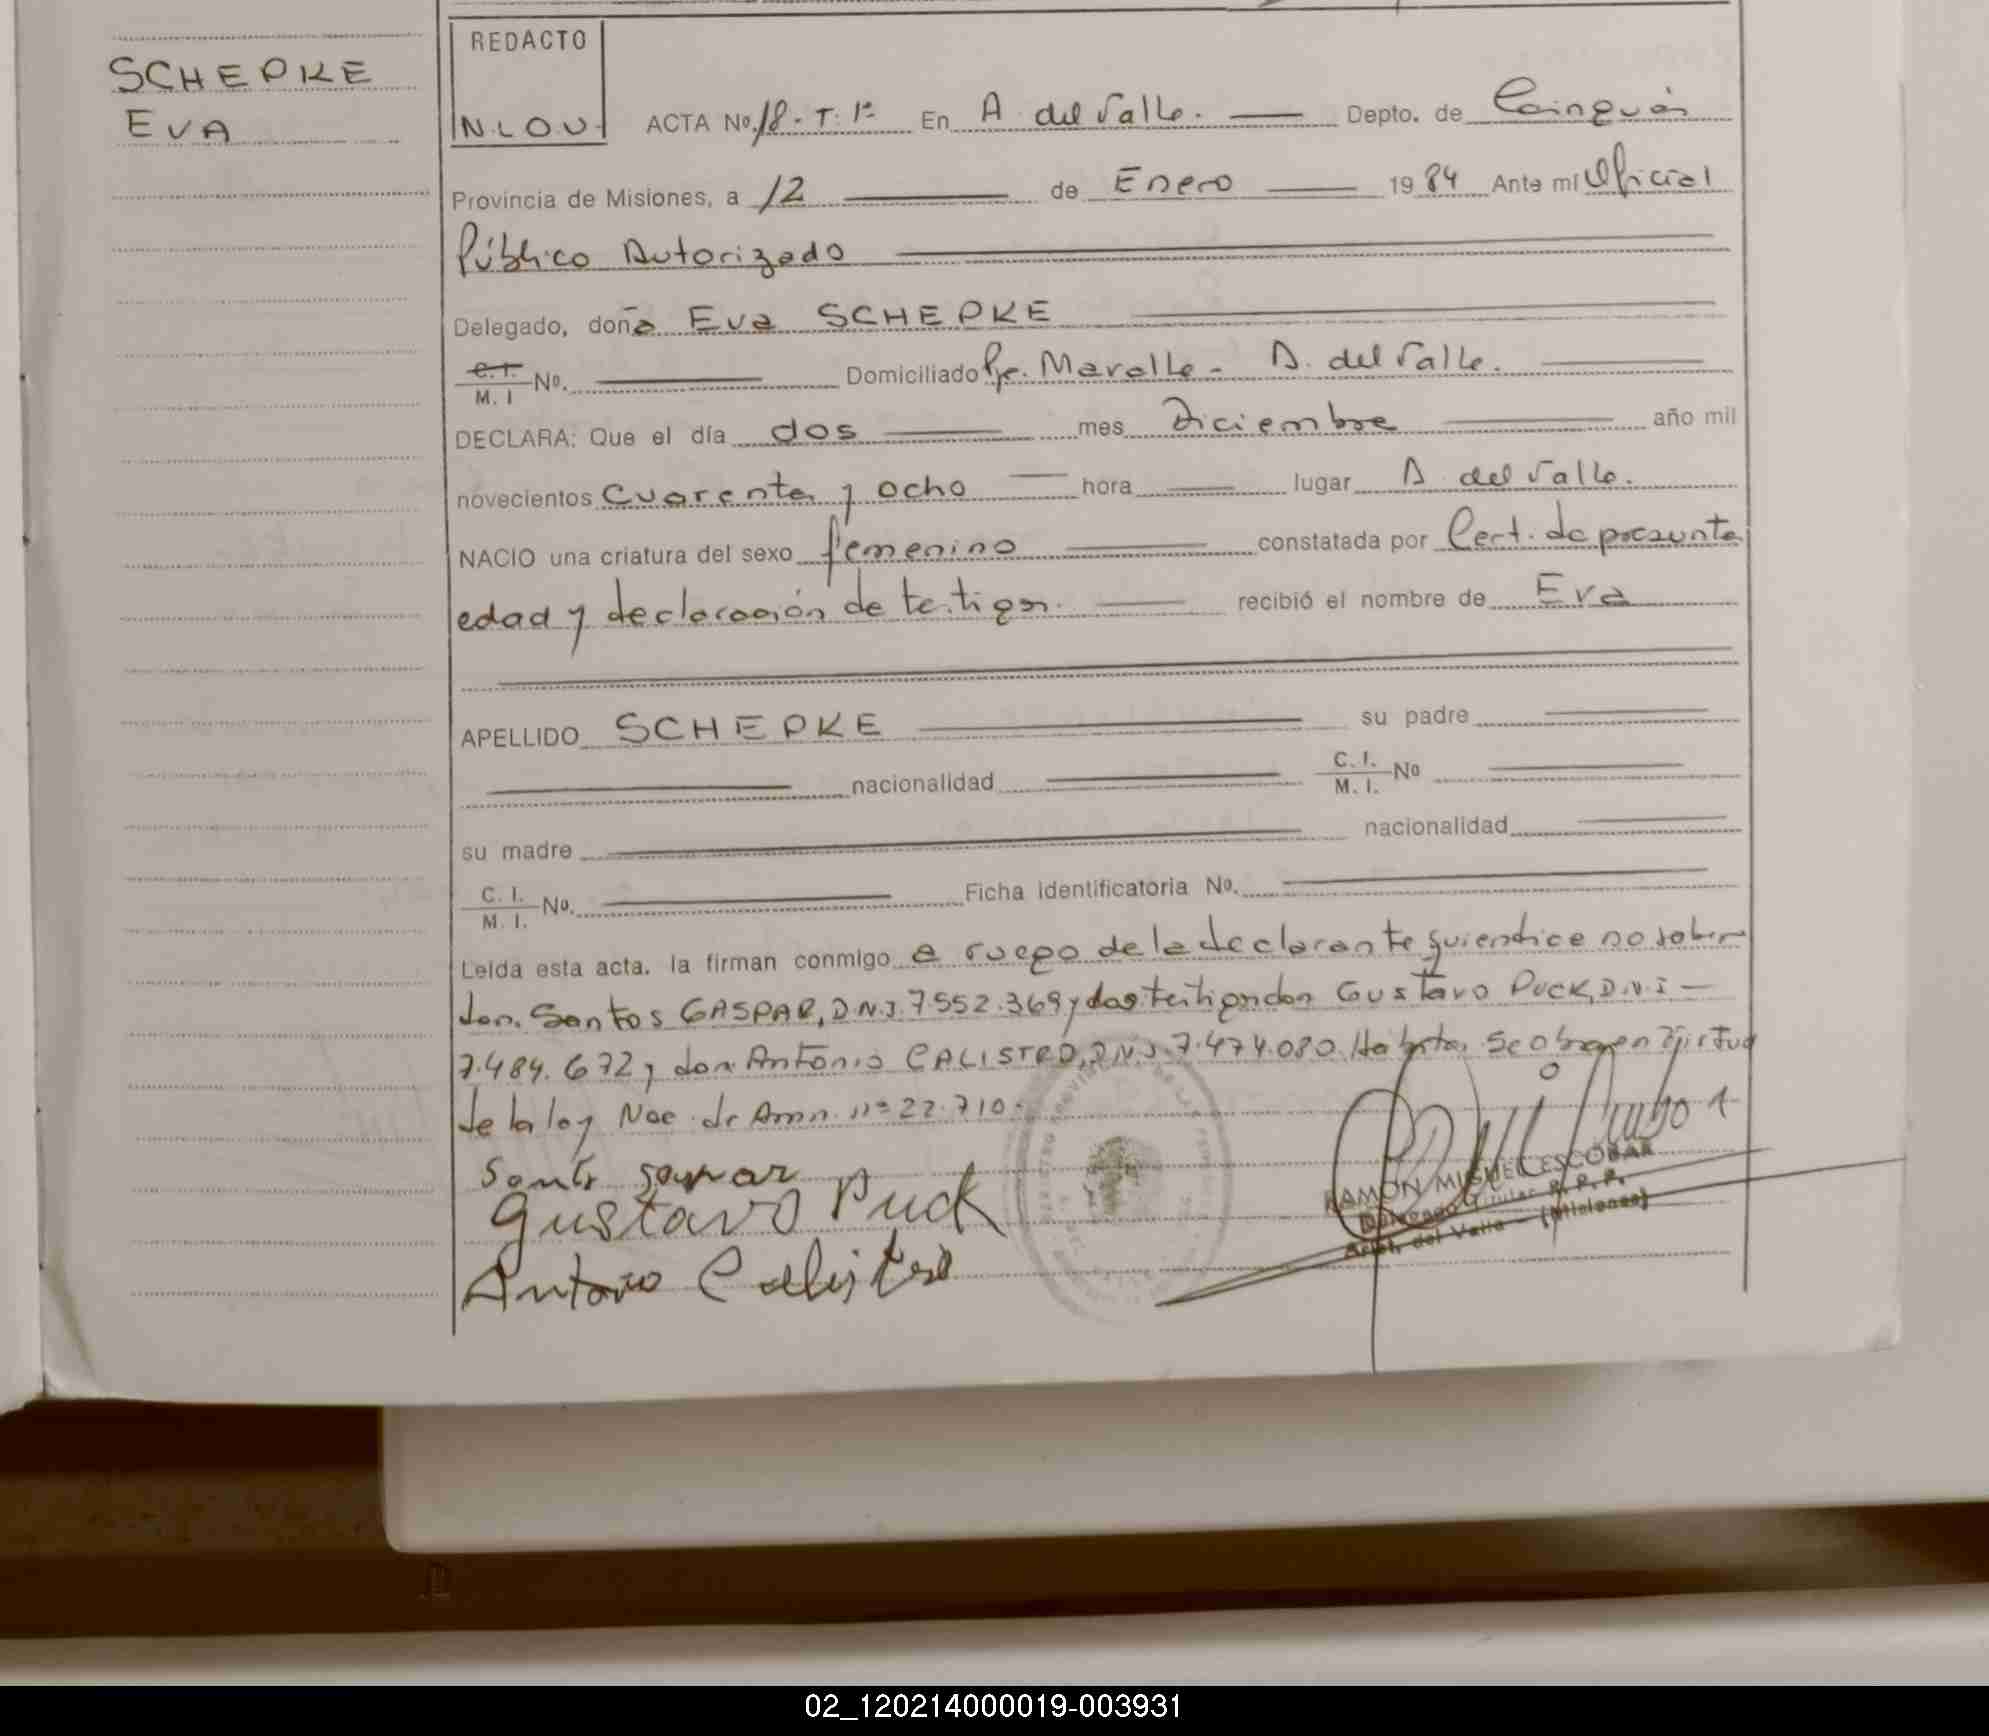 SCHEPKE
EVA
REDACTO
N.L.O.U.
ACTA No. 18 - T. 1º En A. del Valle. Depto. de Cainguás
Provincia de Misiones, a 12 de Enero 1984 Ante mi Oficial
Público Autorizado
Delegado, doña Eva SCHEPKE
C. I. / M. I No. Domiciliado Pje. Maralle - A. del Valle.
DECLARA: Que el día dos mes Diciembre año mil
novecientos cuarenta y ocho hora lugar A. del Valle.
NACIO una criatura del sexo femenino constatada por Cert. de presunta
edad y declaración de testigos. recibió el nombre de Eva
APELLIDO SCHEPKE su padre
nacionalidad C. I. / M. I. No
su madre nacionalidad
C. I. / M. I. No. Ficha identificatoria No.
Leída esta acta, la firman conmigo a ruego de la declarante quien dice no saber
don. Santos GASPAR, D.N.I. 7.552.369 y dos testigos don Gustavo PUCK, D.N.I -
7.484.672 y don Antonio CALISTRO, D.N.I. 7.474.080. Se en virtud
de la ley Nac. de Amn. nº 22.710.
Gustavo Puck
Antonio Calistro
RAMON MIGUEL ESCOBAR
Delegado Titular R. P. P.
Arist. del Valle - (Misiones)
02_120214000019-003931